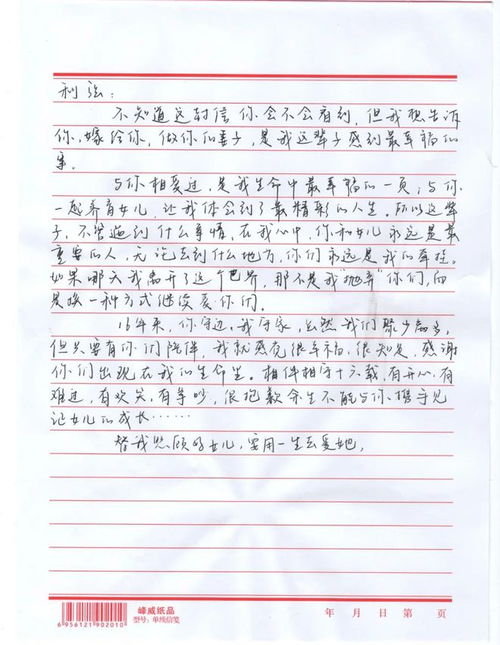 利法：
不知道这封信你会不会看到，但我想告诉
你，嫁给你，做你的妻子，是我这辈子感到最幸福的
事。
与你相爱过，是我生命中最幸福的一页；与你
一起养育女儿，让我体会到了最精彩的人生。所以这辈
子，不管遇到什么事情，在我心中，你和女儿永远是最
重要的人，无论去到什么地方，你们永远是我的牵挂。
如果哪天我离开了这个世界，那不是我“抛弃”你们，而
是换一种方式继续爱你们。
16年来，你守边，我守家，虽然我们聚少离多，
但只要有你们陪伴，我就感觉很幸福，很知足，感谢
你们出现在我的生命里。相伴相守十六载，有开心，有
难过，有欢笑，有争吵，很抱歉余生不能与你携手见
证女儿的成长……
替我照顾好女儿，要用一生去爱她，
峰威纸品
型号：单线信笺
6956121902010
年 月 日 第 页